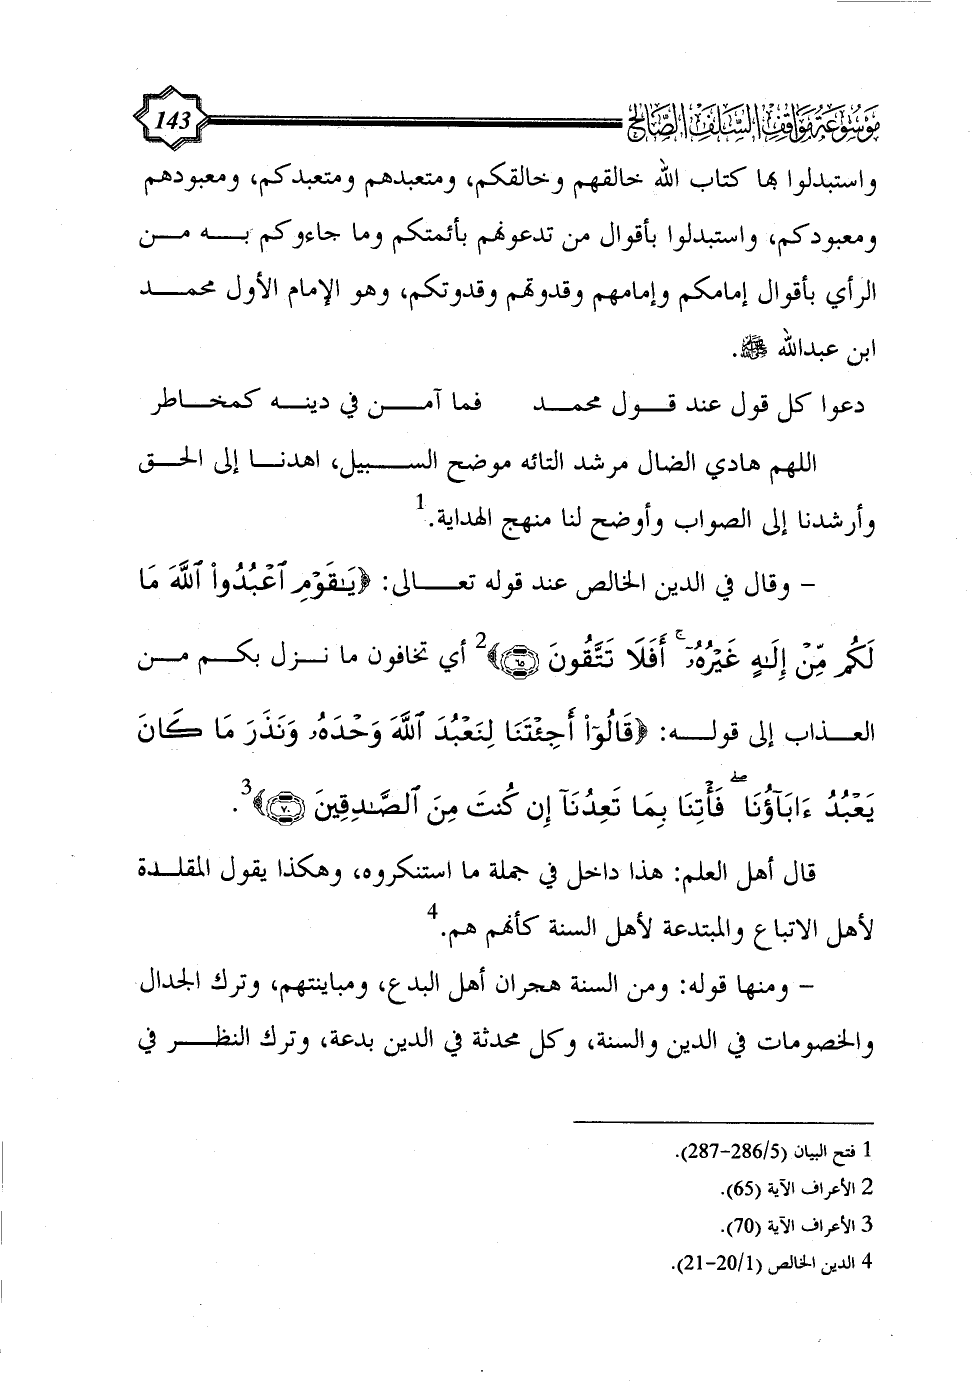 موسوعة مواقف السلف الصالح
143
واستبدلوا بها كتاب الله خالقهم وخالقكم، ومتعبدهم ومتعبدكم، ومعبودهم
ومعبودكم، واستبدلوا بأقوال من تدعونهم بأئمتكم وما جاءوكم به من
الرأي بأقوال إمامكم وإمامهم وقدوتهم وقدوتكم، وهو الإمام الأول محمد
ابن عبدالله ﷺ.
دعوا كل قول عند قول محمد فما آمن في دينه كمخاطر
اللهم هادي الضال مرشد التائه موضح السبيل، اهدنا إلى الحق
وأرشدنا إلى الصواب وأوضح لنا منهج الهداية.1
– وقال في الدين الخالص عند قوله تعالى: ﴿يَـٰقَوْمِ ٱعْبُدُوا۟ ٱللَّهَ مَا
لَكُم مِّنْ إِلَـٰهٍ غَيْرُهُۥٓ ۚ أَفَلَا تَتَّقُونَ ٦٥﴾2 أي تخافون ما نزل بكم من
العذاب إلى قوله: ﴿قَالُوٓا۟ أَجِئْتَنَا لِنَعْبُدَ ٱللَّهَ وَحْدَهُۥ وَنَذَرَ مَا كَانَ
يَعْبُدُ ءَابَآؤُنَا ۖ فَأْتِنَا بِمَا تَعِدُنَآ إِن كُنتَ مِنَ ٱلصَّـٰدِقِينَ ٧٠﴾3.
قال أهل العلم: هذا داخل في جملة ما استنكروه، وهكذا يقول المقلدة
لأهل الاتباع والمبتدعة لأهل السنة كأنهم هم.4
– ومنها قوله: ومن السنة هجران أهل البدع، ومباينتهم، وترك الجدال
والخصومات في الدين والسنة، وكل محدثة في الدين بدعة، وترك النظر في
1 فتح البيان (286/5-287).
2 الأعراف الآية (65).
3 الأعراف الآية (70).
4 الدين الخالص (20/1-21).